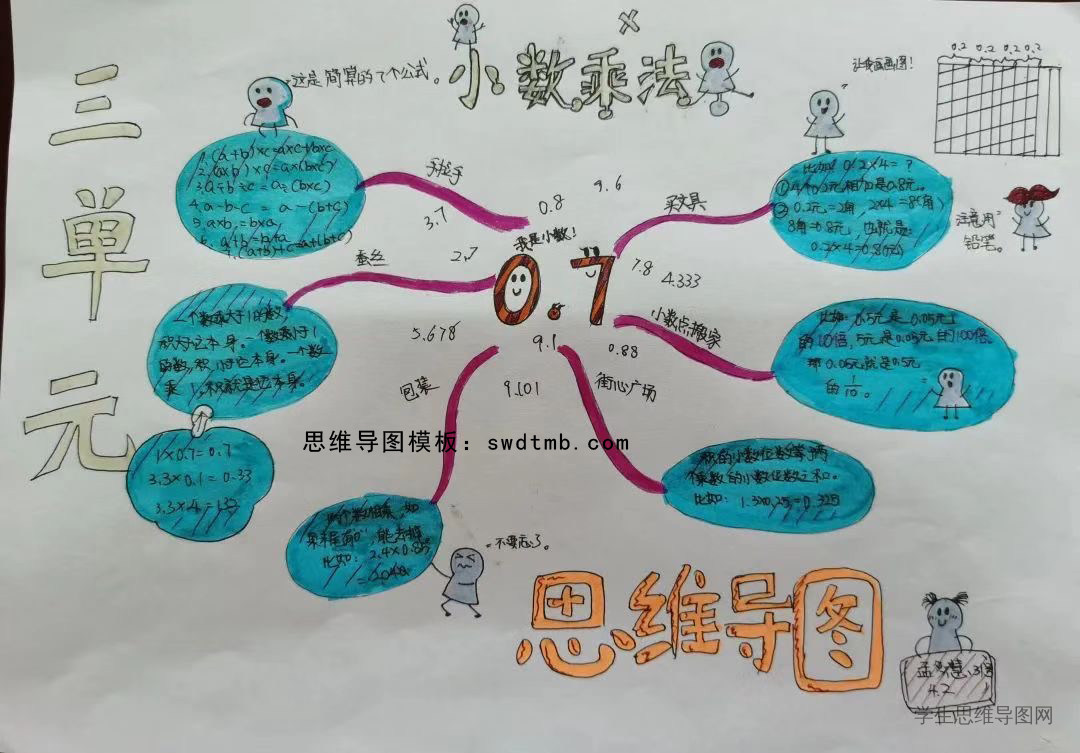 三單元
小数乘法
×
让我画画图！
0.2 0.2 0.2 0.2
这是简算的7个公式。
1.(a+b)×c=a×c+b×c
2.(a×b)×c=a×(b×c)
3.a÷b÷c=a÷(b×c)
4.a-b-c=a-(b+c)
5.a×b=b×a
6.a+b=b+a
7.(a+b)+c=a+(b+c)
手拉手
3.7
0.8
9.6
买文具
比如：0.2×4=？
①4个0.2元相加是0.8元。
②0.2元=2角，2×4=8(角)
8角=0.8元，也就是：
0.2×4=0.8(元)
注意用
铅笔。
蚕丝
我是小数！
0.7
7.8
4.333
5.678
9.1
0.88
9.101
小数点搬家
比如：0.5元是0.05元
的10倍，5元是0.05元的100倍。
那0.05元就是0.5元
的1/10。
一个数乘大于1的数
积大于它本身。一个数乘小于1
的数，积小于它本身。一个数
乘1，积就是它本身。
1×0.7=0.7
3.3×0.1=0.33
包装
比如：2.4×0.85
不要忘了。
街心广场
积的小数位数等于两
乘数的小数位数之和。
比如：1.3×0.25=0.325
思维导图模板：swdtmb.com
思维导图
4.2
学生思维导图网